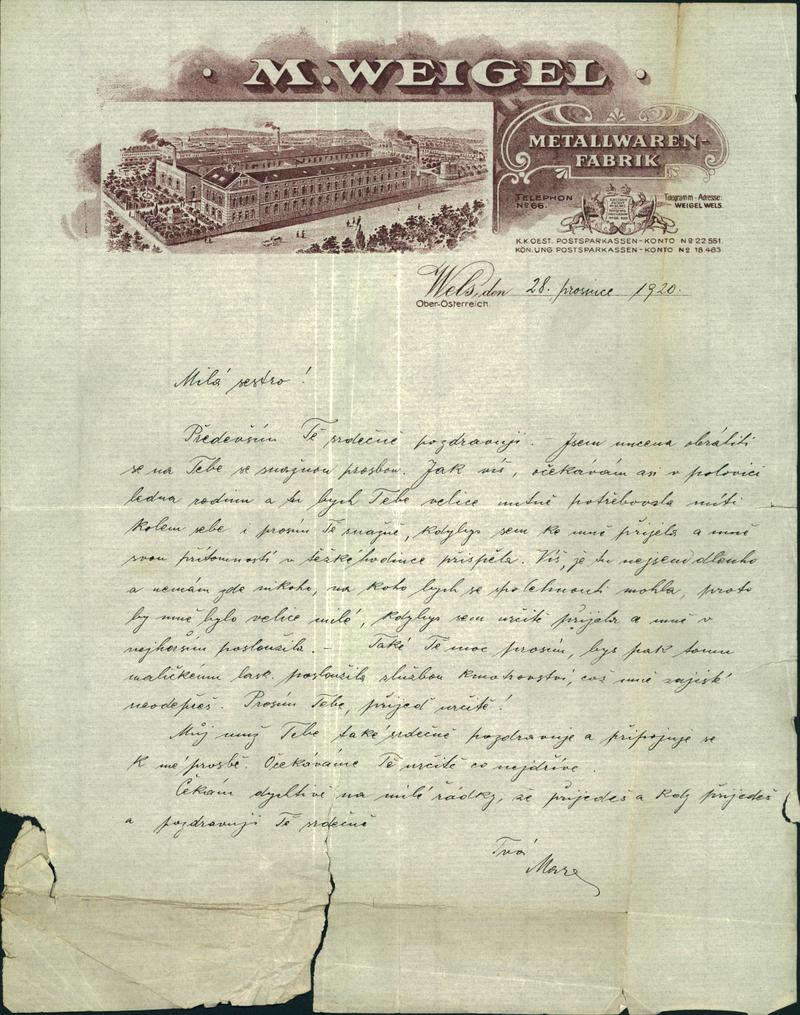 M. WEIGEL
METALLWAREN-
FABRIK
TELEPHON
Nº 66.
Telegramm-Adresse:
WEIGEL WELS.
K.K. OEST. POSTSPARKASSEN-KONTO Nº 22.551.
KÖN. UNG. POSTSPARKASSEN-KONTO Nº 18.483.
Wels, den 28. prosince 1920.
Ober-Österreich.
Milá sestro!
Předevšim Tě srdečně pozdravuji. – Jsem nucena obrátiti
se na Tebe se snažnou prosbou. Jak víš, očekávám asi v polovici
ledna rodinu a tu bych Tebe velice nutně potřebovala míti
kolem sebe i prosím Tě snažně, kdybys sem ko mně přijela a mně
svou přítomností v těžké hodince přispěla. Víš, je tu nejsem dlouho
a nemám zde nikoho, na koho bych se spolehnouti mohla, proto
by mně bylo velice milé, kdybys sem určitě přijela a mně v
nejhorším posloužila. – Také Tě moc prosím, bys pak tomu
maličkému lask. posloužila službou kmotrovství, což mně zajisté
neodepřeš. Prosím Tebe, přijeď určitě!
Můj muž Tebe také srdečně pozdravuje a připojuje se
k mé prosbě. Očekáváme Tě určitě co nejdříve.
Čekám dychtivě na milé řádky, že přijedeš a kdy přijedeš
a pozdravuji Tě srdečně
Tvá